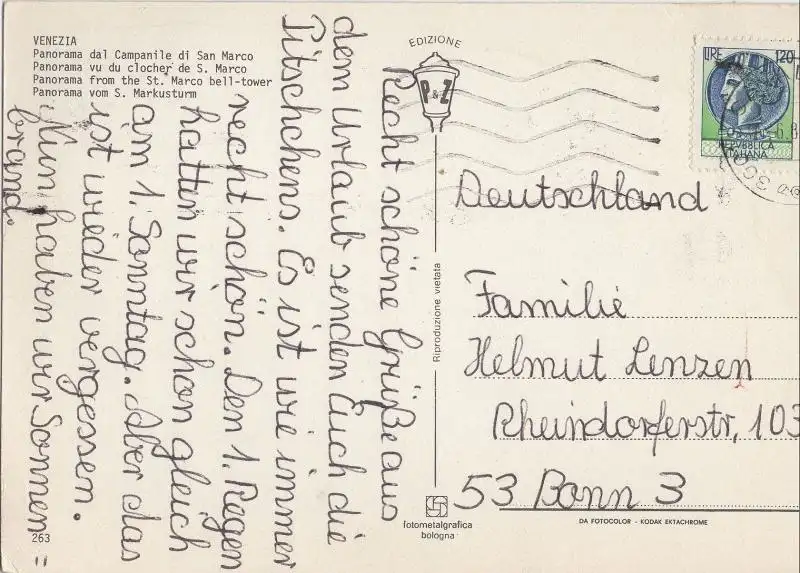 VENEZIA
Panorama dal Campanile di San Marco
Panorama vu du clocher de S. Marco
Panorama from the St. Marco bell-tower
Panorama vom S. Markusturm
Recht schöne Grüße aus
dem Urlaub senden Euch die
Pitschchens. Es ist wie immer
recht schön. Den 1. Regen
hatten wir schon gleich
am 1. Sonntag. Aber das
ist wieder vergessen.
Nun haben wir Sonnen
brand.
263
EDIZIONE
P&Z
Riproduzione vietata
fotometalgrafica
bologna
LIRE 120
REPVBBLICA
ITALIANA
Deutschland
Familie
Helmut Lenzen
Rheindorferstr, 103
53 Bonn 3
DA FOTOCOLOR - KODAK EKTACHROME